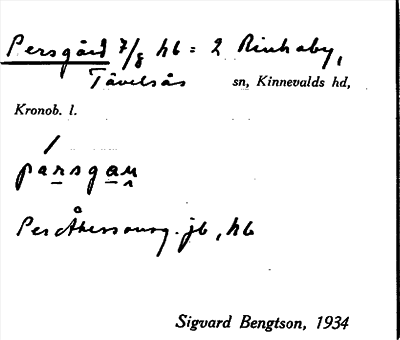 Persgård 7/8 hb = 2 Rinkaby,
Tävelsås sn, Kinnevalds hd,
Kronob. l.
Per Åkessonsg. jb, hb
Sigvard Bengtson, 1934